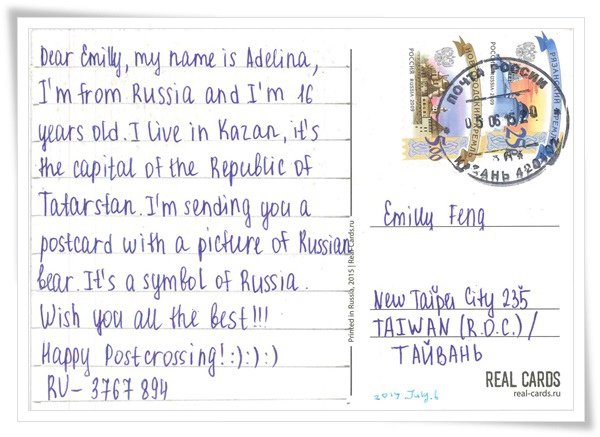 Dear Emilly, my name is Adelina,
I'm from Russia and I'm 16
years old. I live in Kazan, it's
the capital of the Republic of
Tatarstan. I'm sending you a
postcard with a picture of Russian
bear. It's a symbol of Russia.
Wish you all the best!!!
Happy Postcrossing! :) :) :)
RU-3767894
Printed in Russia, 2015 | Real-Cards.ru
РОССИЯ RUSSIA 2009
500
РОССИЯ RUSSIA 2009
25
ПОЧТА РОССИИ
КАЗАНЬ 420102
Emilly Feng
New Taipei City 235
TAIWAN (R.O.C.) /
ТАЙВАНЬ
REAL CARDS
real-cards.ru